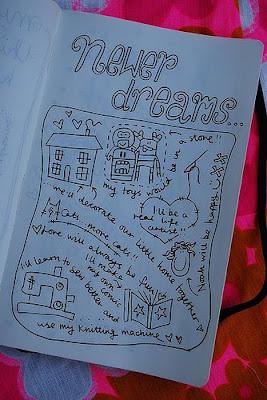 Newer
dreams...
my toys would be in a store!!
me & decorate our little home together
I'll be a
real life
artist!!
Cats, more cats!!
Love will always be fun
Noah will be happy! xxx
I'll learn to
sew better
I'll make
my own
comic
and...
use my knitting machine